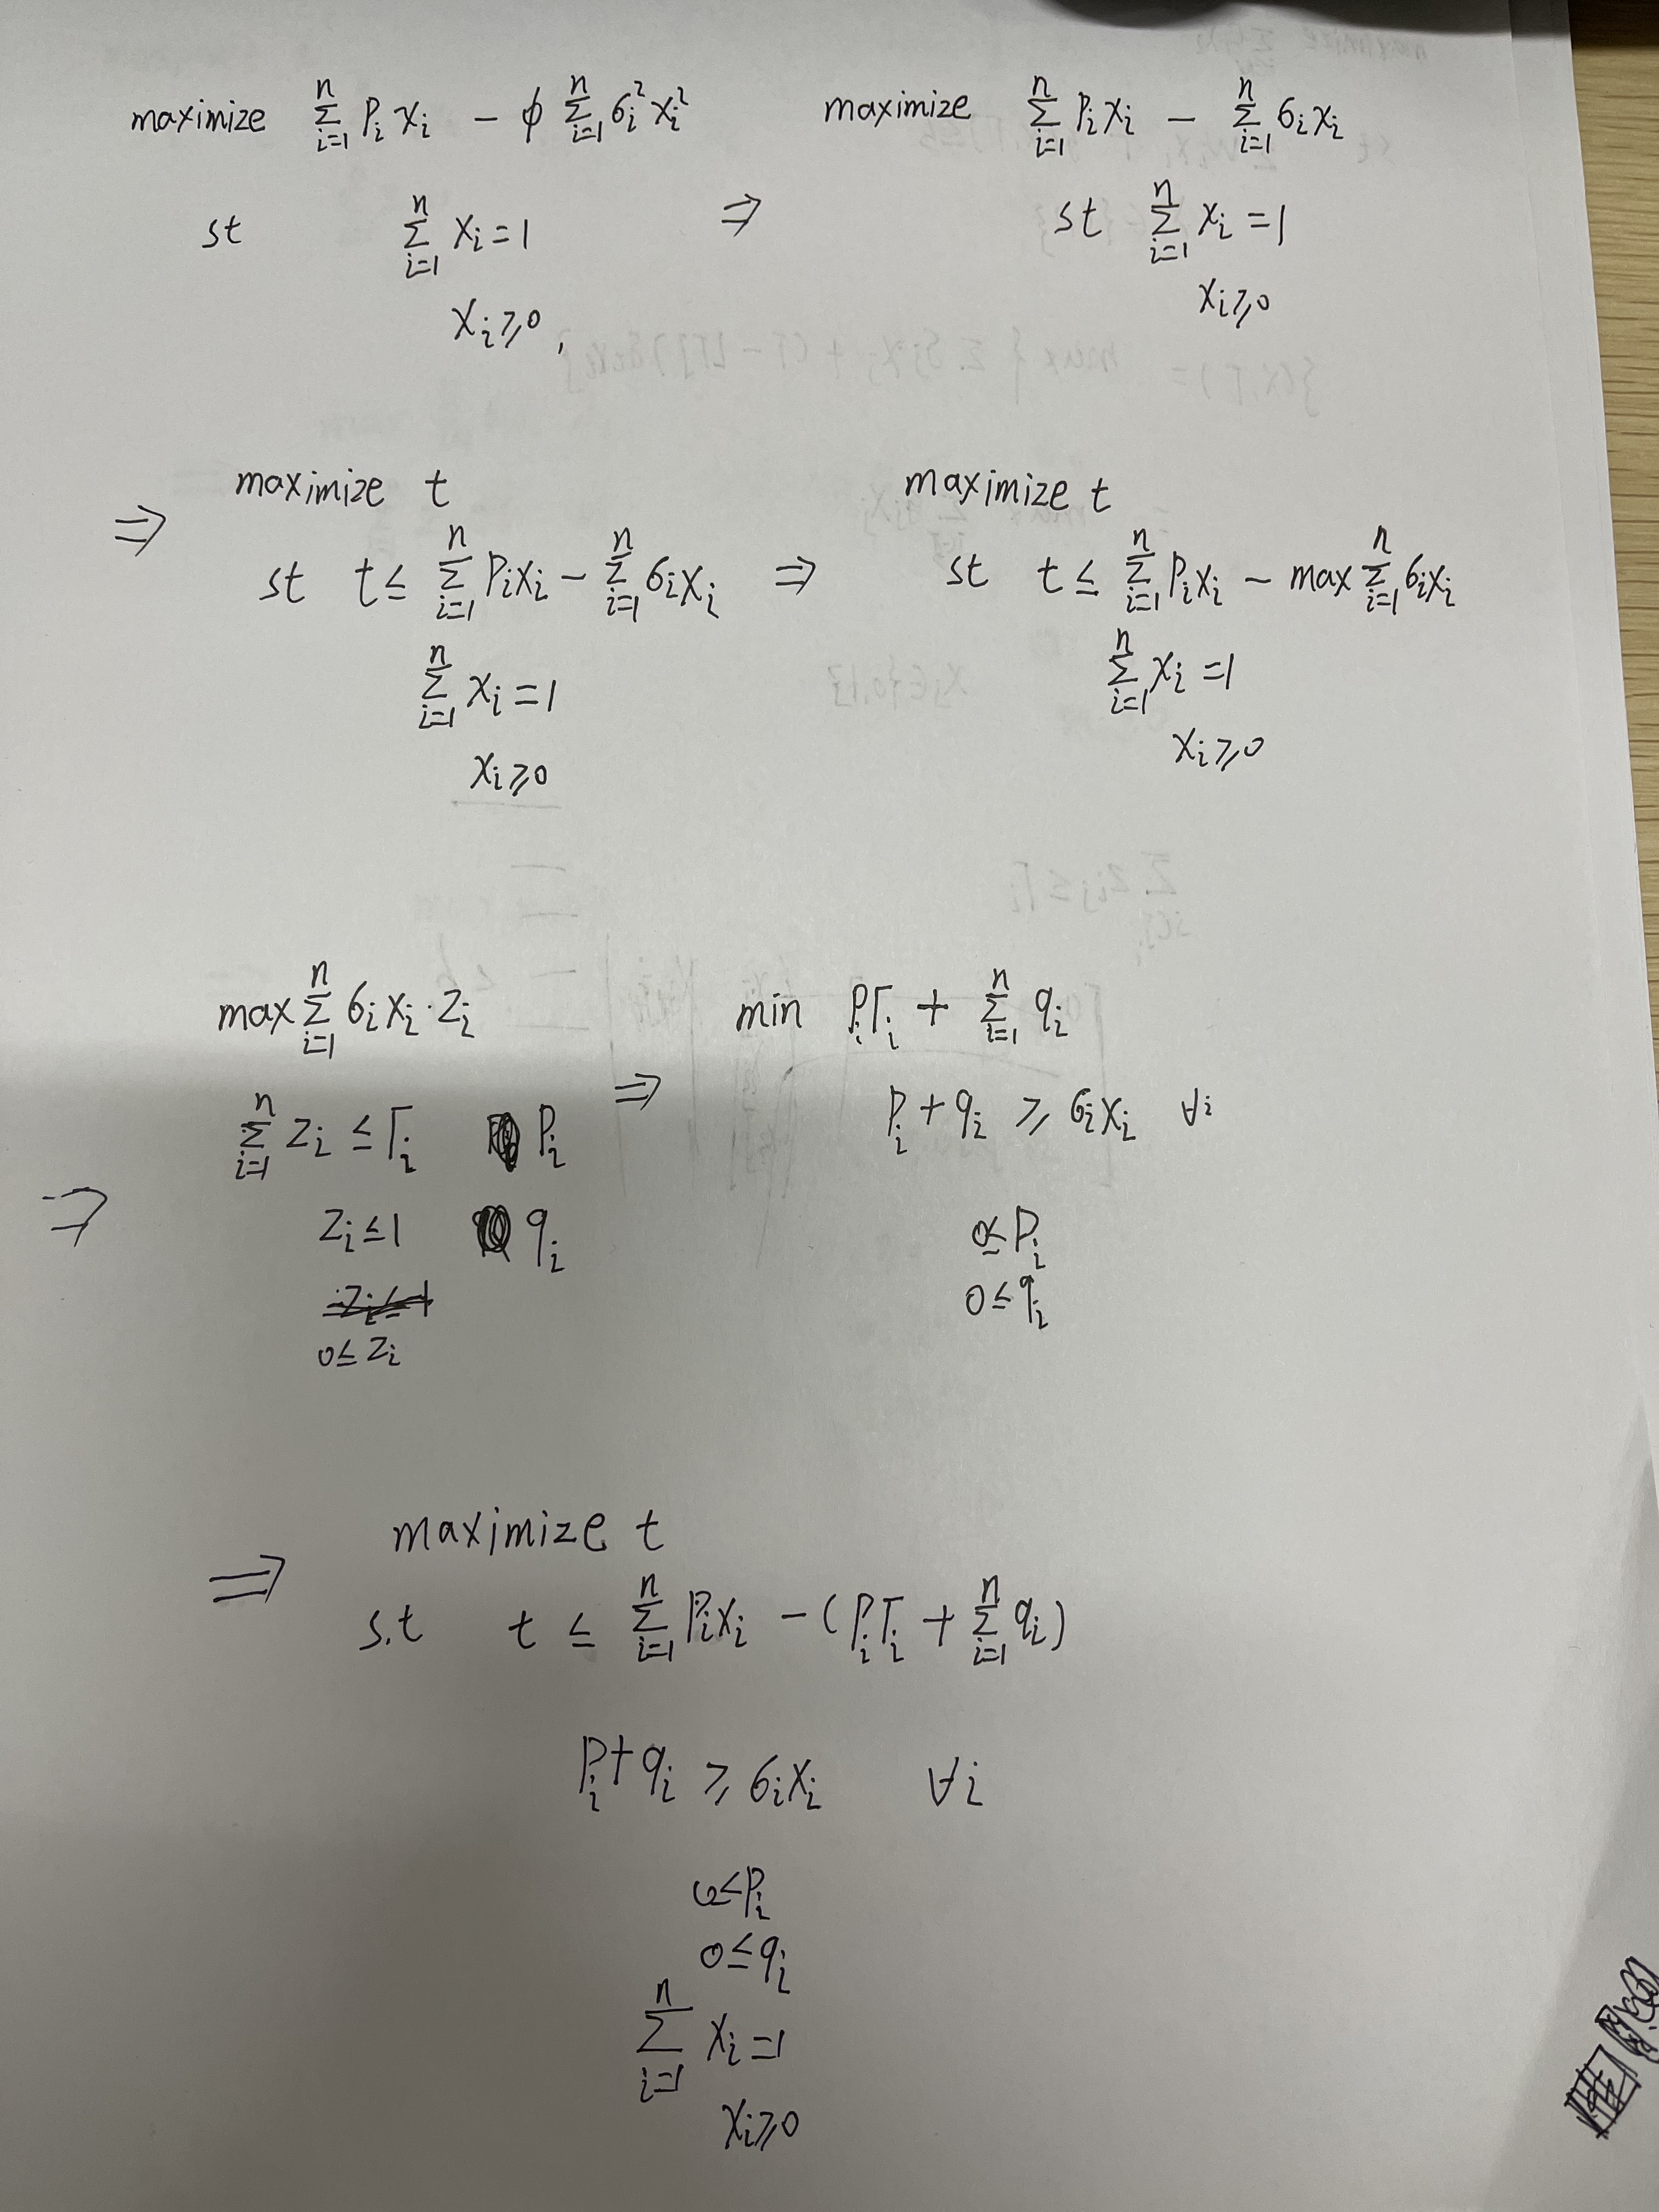 maximize ∑_{i=1}^{n} P_i x_i − ϕ ∑_{i=1}^{n} σ_i^2 x_i^2
st ∑_{i=1}^{n} x_i = 1
x_i ⩾ 0,
⇒ maximize ∑_{i=1}^{n} P_i x_i − ∑_{i=1}^{n} σ_i x_i
st ∑_{i=1}^{n} x_i = 1
x_i ⩾ 0
⇒ maximize t
st t ≤ ∑_{i=1}^{n} P_i x_i − ∑_{i=1}^{n} σ_i x_i
∑_{i=1}^{n} x_i = 1
x_i ⩾ 0
⇒ maximize t
st t ≤ ∑_{i=1}^{n} P_i x_i − max ∑_{i=1}^{n} σ_i x_i
∑_{i=1}^{n} x_i = 1
x_i ⩾ 0
⇒ max ∑_{i=1}^{n} σ_i x_i · z_i
∑_{i=1}^{n} z_i ≤ Γ_i P_i
z_i ≤ 1 q_i
0 ≤ z_i
⇒ min P_i Γ_i + ∑_{i=1}^{n} q_i
P_i + q_i ⩾ σ_i x_i ∀i
0 ≤ P_i
0 ≤ q_i
⇒ maximize t
s.t t ≤ ∑_{i=1}^{n} P_i x_i − (P_i Γ_i + ∑_{i=1}^{n} q_i)
P_i + q_i ⩾ σ_i x_i ∀i
0 ≤ P_i
0 ≤ q_i
∑_{i=1}^{n} x_i = 1
x_i ⩾ 0